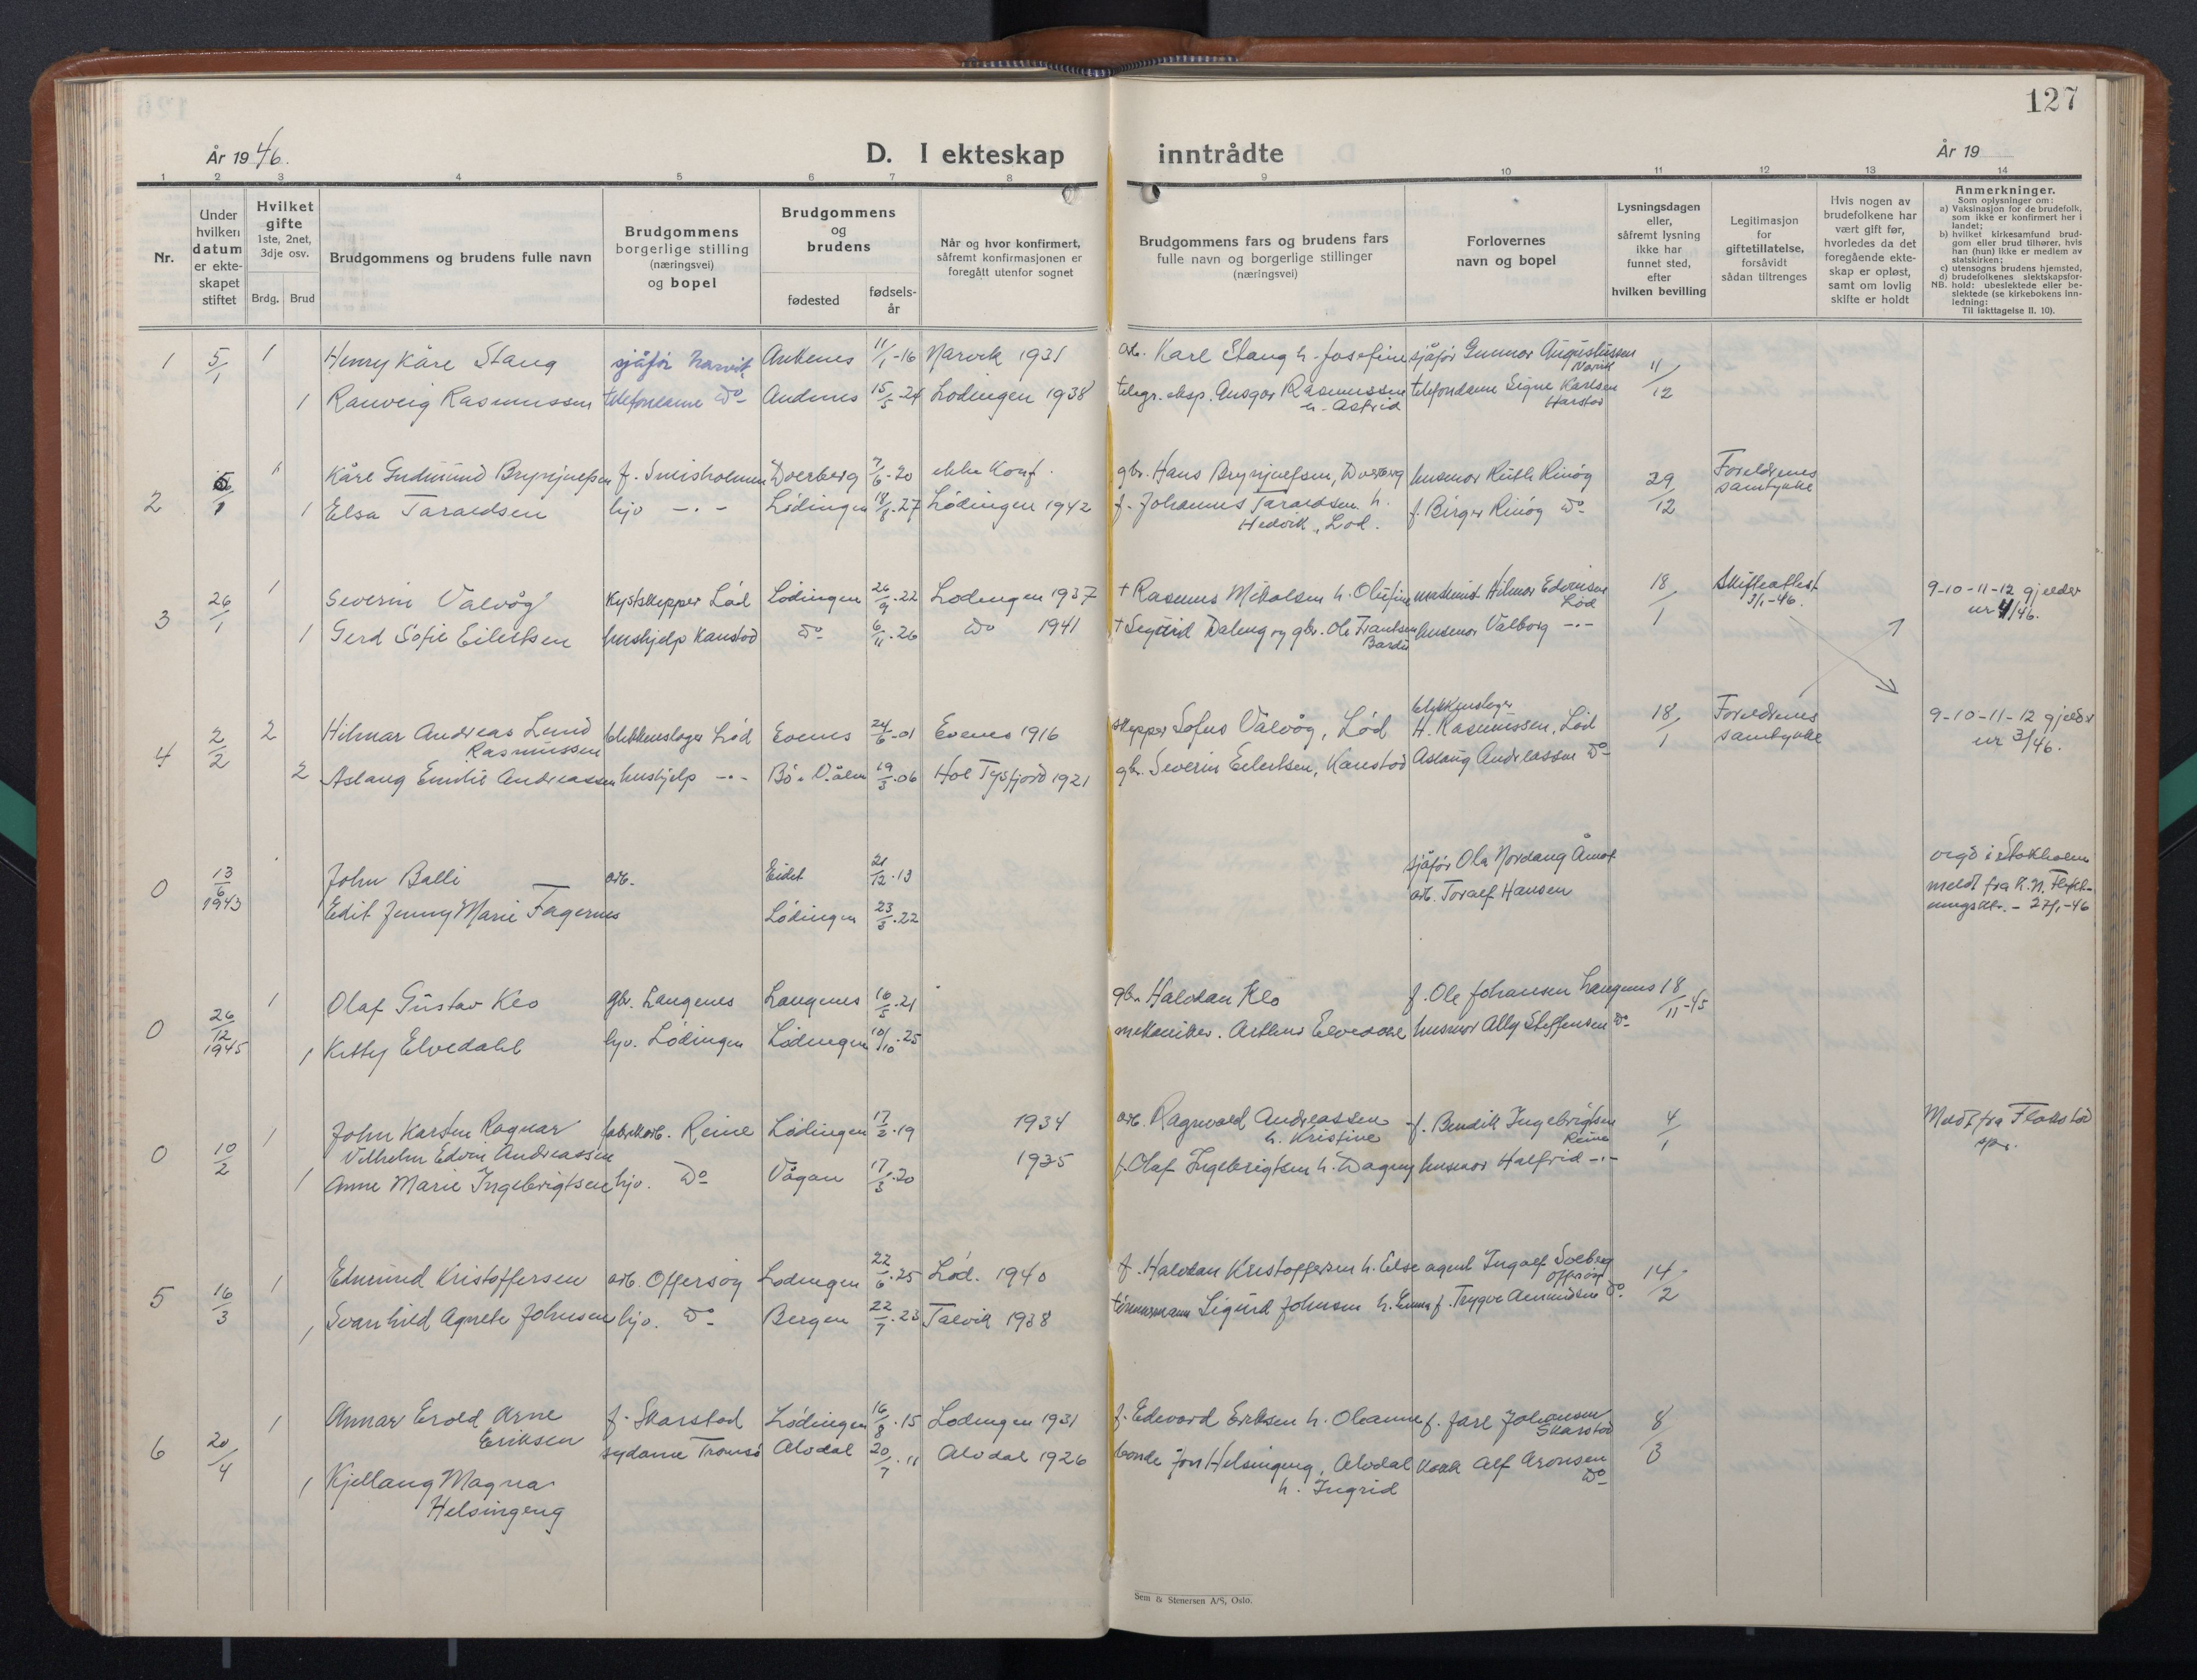 127
År 1946.
D. I ekteskap inntrådte
År 19
1 2 3 4 5 6 7 8 9 10 11 12 13 14
Nr.
Under hvilken datum er ekteskapet stiftet
Hvilket gifte 1ste, 2net, 3dje osv.
Brdg. Brud
Brudgommens og brudens fulle navn
Brudgommens borgerlige stilling (næringsvei) og bopel
Brudgommens og brudens
fødested
fødsels-år
Når og hvor konfirmert, såfremt konfirmasjonen er foregått utenfor sognet
Brudgommens fars og brudens fars fulle navn og borgerlige stillinger (næringsvei)
Forlovernes navn og bopel
Lysningsdagen eller, såfremt lysning ikke har funnet sted, efter hvilken bevilling
Legitimasjon for giftetillatelse, forsåvidt sådan tiltrenges
Hvis nogen av brudefolkene har vært gift før, hvorledes da det foregående ekteskap er opløst, samt om lovlig skifte er holdt
Anmerkninger.
Som oplysninger om:
a) Vaksinasjon for de brudefolk, som ikke er konfirmert her i landet;
b) hvilket kirkesamfund brudgom eller brud tilhører, hvis han (hun) ikke er medlem av statskirken;
c) utensogns brudens hjemsted,
d) brudefolkenes slektskapsforhold: ubeslektede eller beslektede (se kirkebokens innledning:
NB.
Til iakttagelse II. 10).
1 5/1 1 Henry Kåre Stang sjåfør Narvik Ankenes 11/1-16 Narvik 1931 arb. Karl Stang h. Josefine sjåfør Gunnar Augustussen Narvik 11/12
1 Ranveig Rasmussen telefondame do Andenes 15/5-24 Lødingen 1938 telegr.eksp. Ansgar Rasmussen h. Astrid telefondame Signe Karlsen Harstad
2 5/1 1 Kåre Gudmund Brynjulfsen f. Dverberg 7/6-20 ikke Konf. gbr. Hans Brynjulfsen, Dverberg husmor Ruth Rinøg 29/12 Foreldrenes samtykke
1 Elsa Taraldsen hjv -.- Lødingen 18/8-27 Lødingen 1942 f. Johannes Taraldsen h. Hedvik, Lød. f. Birger Rinøg do
3 26/1 1 Severin Valvåg Kystskipper Lød Lødingen 26/9-22 Lødingen 1937 + Rasmus Mikalsen h. Olufine maskinist Hilmar Edvinsen Lød 18/1 Skifteattest 3/1-46. 9-10-11-12 gjelder nr 4/46.
1 Gerd Sofie Eilertsen hushjelp Kanstad do 6/11-26 do 1941 + Sigurd Daleng og gbr. Ole Frantsen Bardu husmor Valborg -.-
4 2/2 2 Hilmar Andreas Lund Rasmussen blikkenslager Lød Evenes 24/6-01 Evenes 1916 skipper Sofus Valvåg, Lød blikkenslager H. Rasmussen, Lød 18/1 Foreldrenes samtykke 9-10-11-12 gjelder nr 3/46.
2 Aslaug Emilie Andreassen hushjelp -.- Bø. V.ålen 19/3-06 Hol Tysfjord 1921 gbr. Severin Eilertsen, Kanstad Aslaug Andreassen do
0 13/6 1943 John Balli arb. Eidet 21/12-13 sjåfør Ola Nordang Åmot vigd i Stokholm
Edit Jenny Marie Fagernes Lødingen 23/3-22 arb. Toralf Hansen meldt fra K.N. Flyktningsktr. - 27/1-46
0 26/12 1945 1 Olaf Gustav Kleo gbr. Langenes Langenes 16/5-21 gbr. Halvdan Kleo f. Ole Johansen Langenes 18/11-45
1 Kitty Elvedahl hjv. Lødingen Lødingen 10/10-25 mekaniker. Arthur Elvedahl husmor Ally Steffensen do
0 10/2 1 John Karsten Ragnar Vilhelm Edvin Andreassen fabrikkarb. Reine Lødingen 17/2-19 1934 arb. Ragnvald Andreassen h. Kristine f. Bendik Ingebrigtsen Reine 4/1 Meldt fra Flakstad spr.
1 Anne Marie Ingebrigtsen hjv. do Vågan 17/3-20 1935 f. Olaf Ingebrigtsen h. Dagny husmor Halfrid -.-
5 16/3 1 Edmund Kristoffersen arb. Offersøy Lødingen 22/6-25 Lød. 1940 f. Halvdan Kristoffersen h. Else agent Ingolf Solberg Offersøy 14/2
1 Svanhild Agnete Johnsen hjv. do Bergen 22/7-23 Talvik 1938 tømmermann Sigurd Johnsen h. Emma f. Trygve Amundsen do.
6 20/4 1 Annar Erold Arne Eriksen f. Skarstad Lødingen 16/8-15 Lødingen 1931 f. Edvard Eriksen h. Oleanne f. Jarl Johansen Skarstad 8/3
1 Kjellaug Magna Helsingeng sydame Tromsø Alvdal 20/7-11 Alvdal 1926 bonde Jon Helsingeng, Alvdal h. Ingrid kokk Alf Aronsen do
Sem & Stenersen A/S, Oslo.